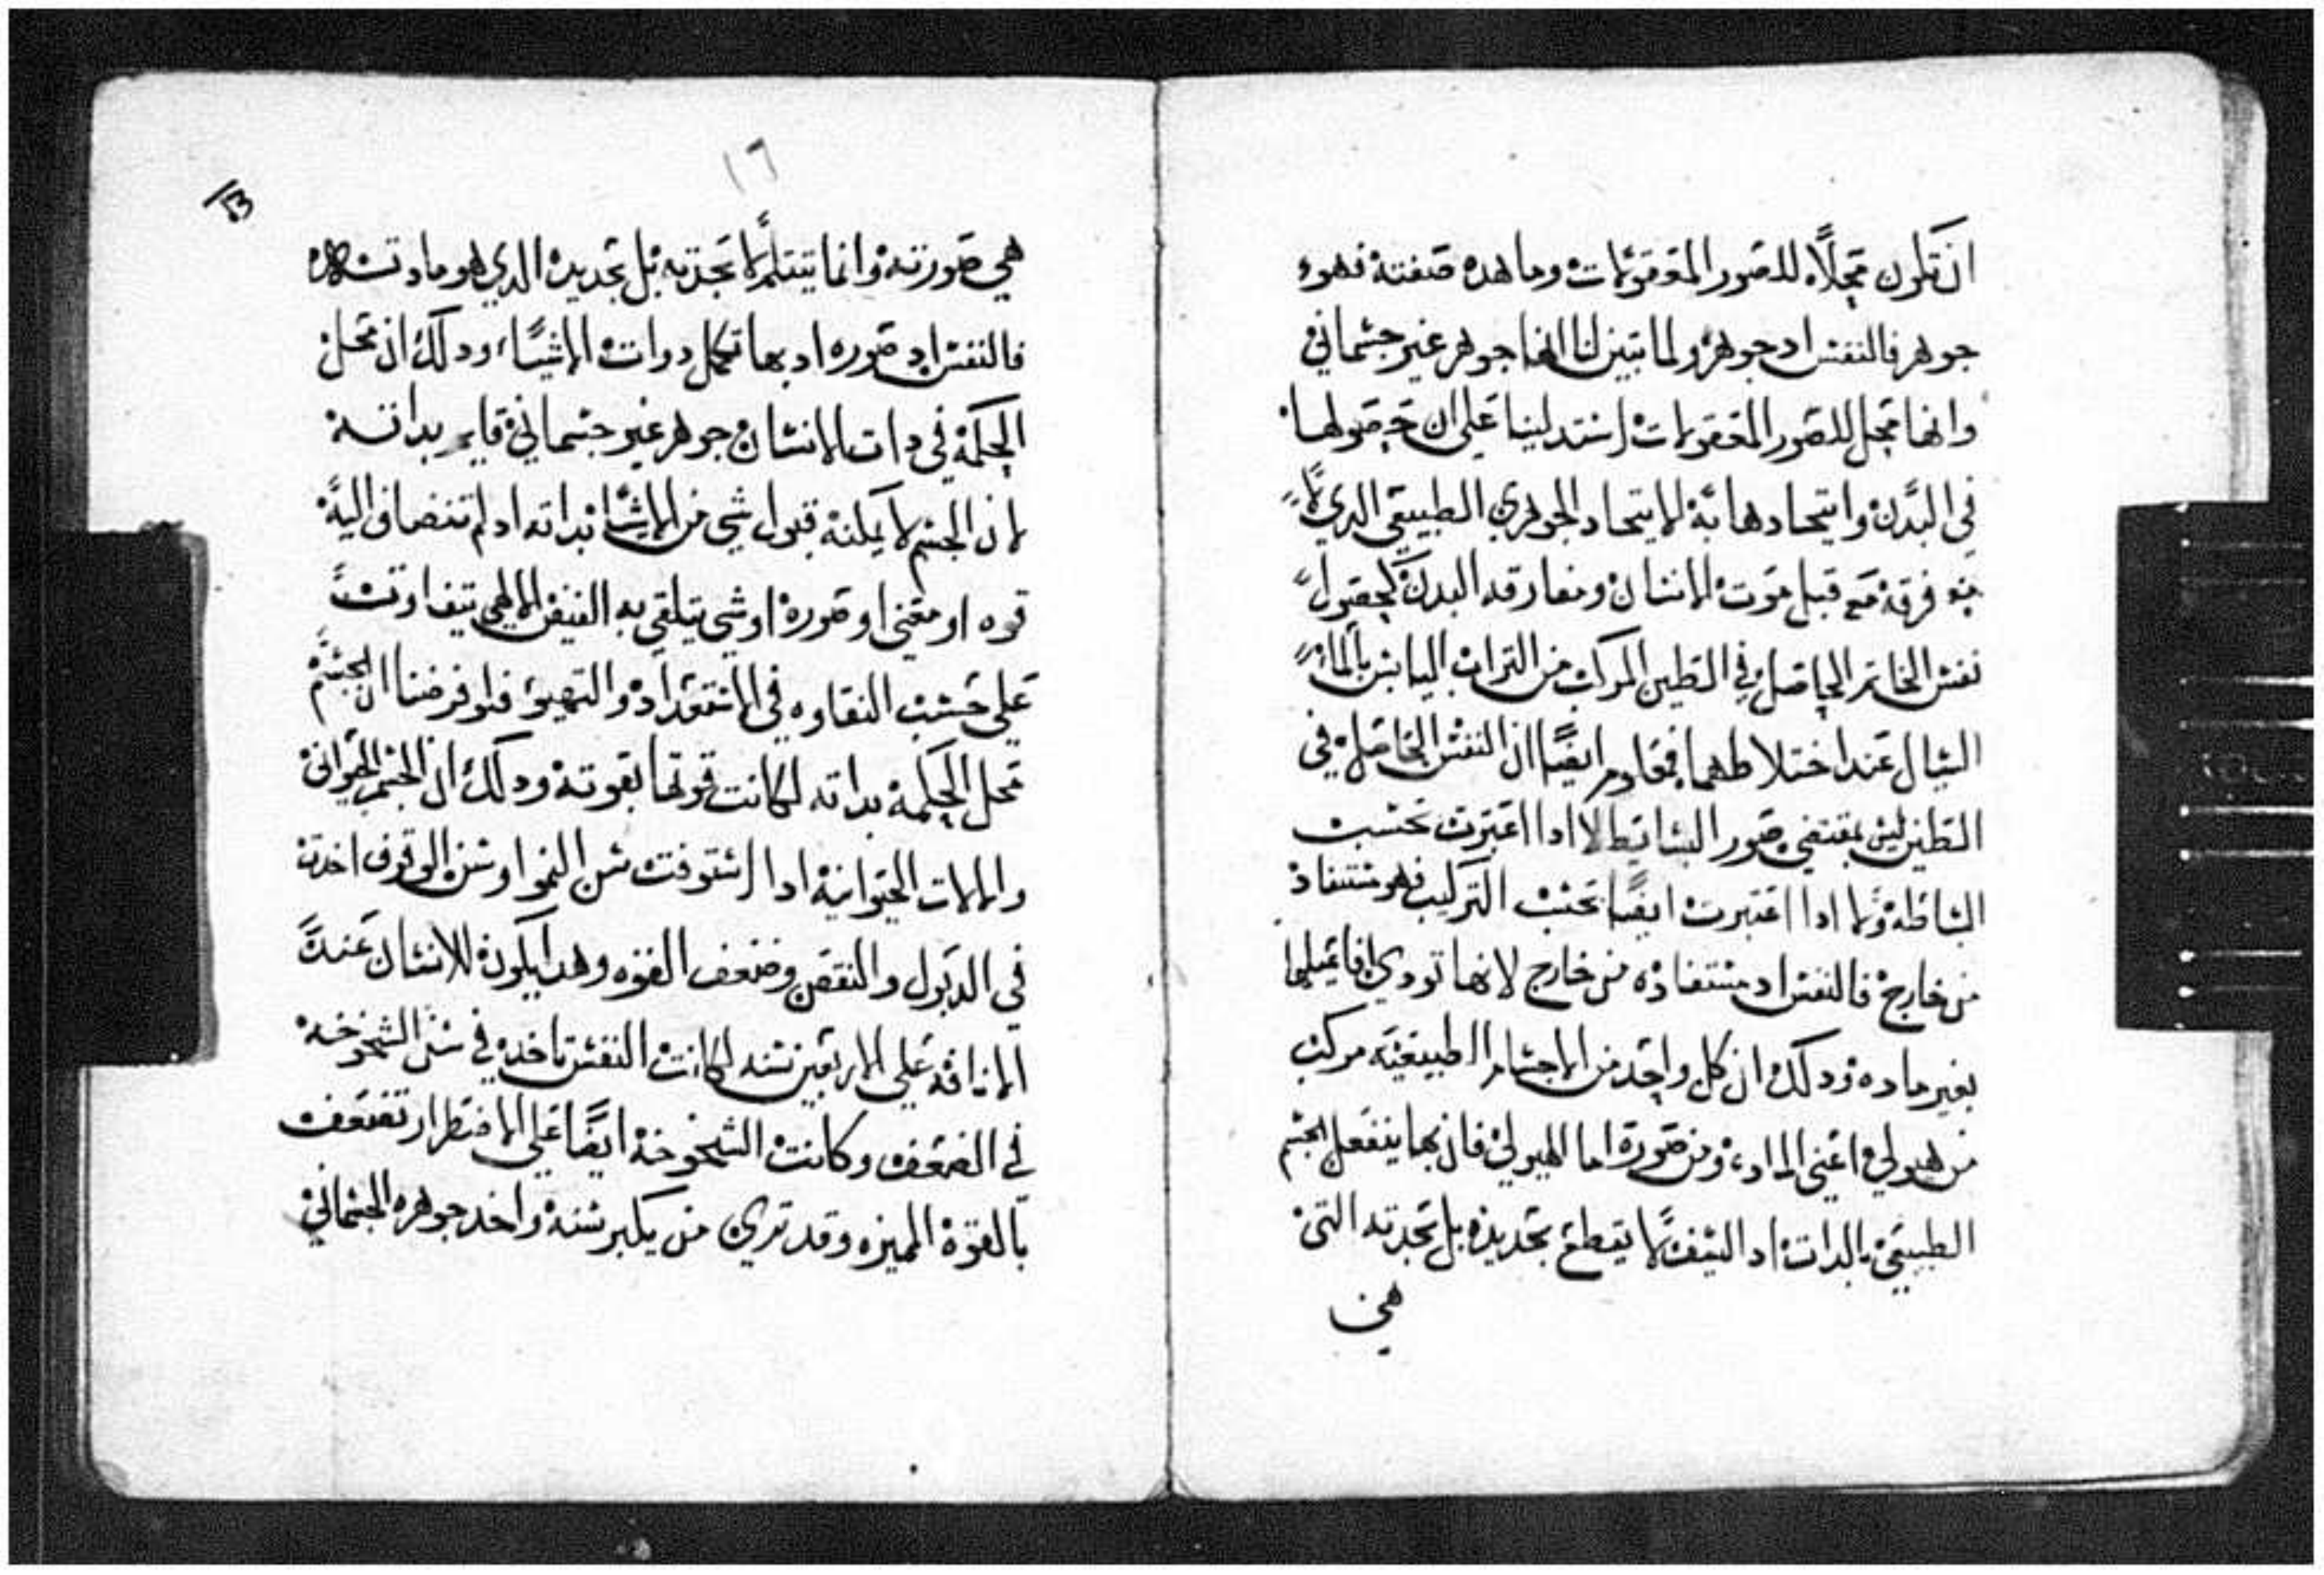 ان تكون محلاً للصور المعقولات وما هده صفته فهو
جوهر فالنفس اد جوهر ولما تبين لنا انها جوهر غير جسماني
وانها محل للصور المعقولات استدلينا على ان حصولها
في البدن واتحادها به الاتحاد الجوهري الطبيعي الدي لا
فرقه مع قبل موت الانسان ومفارقه البدن كحصول
نفس الخاتم الحاصل في الطين المركب من التراب اليابس بالماء
السيال عند اختلاطهما فمعلوم ايضًا ان النفس الحاصل في
الطين ليس بمقتضي صور البسايط لا ادا اعتبرت بحسب
البساطه ولا ادا اعتبرت ايضًا بحسب التركيب فهو مستفاد
من خارج فالنفس اد مستفاده من خارج لانها تودي افاعيلها
بغير ماده ودلك ان كل واحد من الاجسام الطبيعيه مركب
من هيولي اعني الماده ومن صورة اما الهيولي فان بها ينفعل الجسم
الطبيعي بالدات اد السيف لا يقطع بحديده بل بحدته التي
هي
١٦
13
هي صورته وانما يتثلم لا بحدته بل بحديده الدي هو مادته
فالنفس اد صوره اد بها تكمل دوات الاشياء ودلك ان محل
الحكمة في دات الانسان جوهر غير جسماني قايم بداته
لان الجسم لا يمكنه قبول شي من الاشيا بداته اد لم تنضاف اليه
قوه او معني او صورة او شي يتلقي به الفيض الالهي بتفاوت
علي حسب النقاوه في الاستعداد والتهيؤ فلو فرضنا ان الجسم
محل الحكمة بداته لكانت قوتها بقوته ودلك ان الجسم الحيواني
والالات الحيوانية ادا استوفت سن النمو او سن الوقوف اخدت
في الدبول والنقص وضعف القوه وهدا يكون للانسان عند
الانافه علي الاربعين سنه لكانت النفس تاخد في سن الشيخوخه
في الضعف وكانت الشيخوخة ايضًا علي الاضطرار تضعف
بالقوة المميزه وقد تري من يكبر سنه واخد جوهره الجسماني